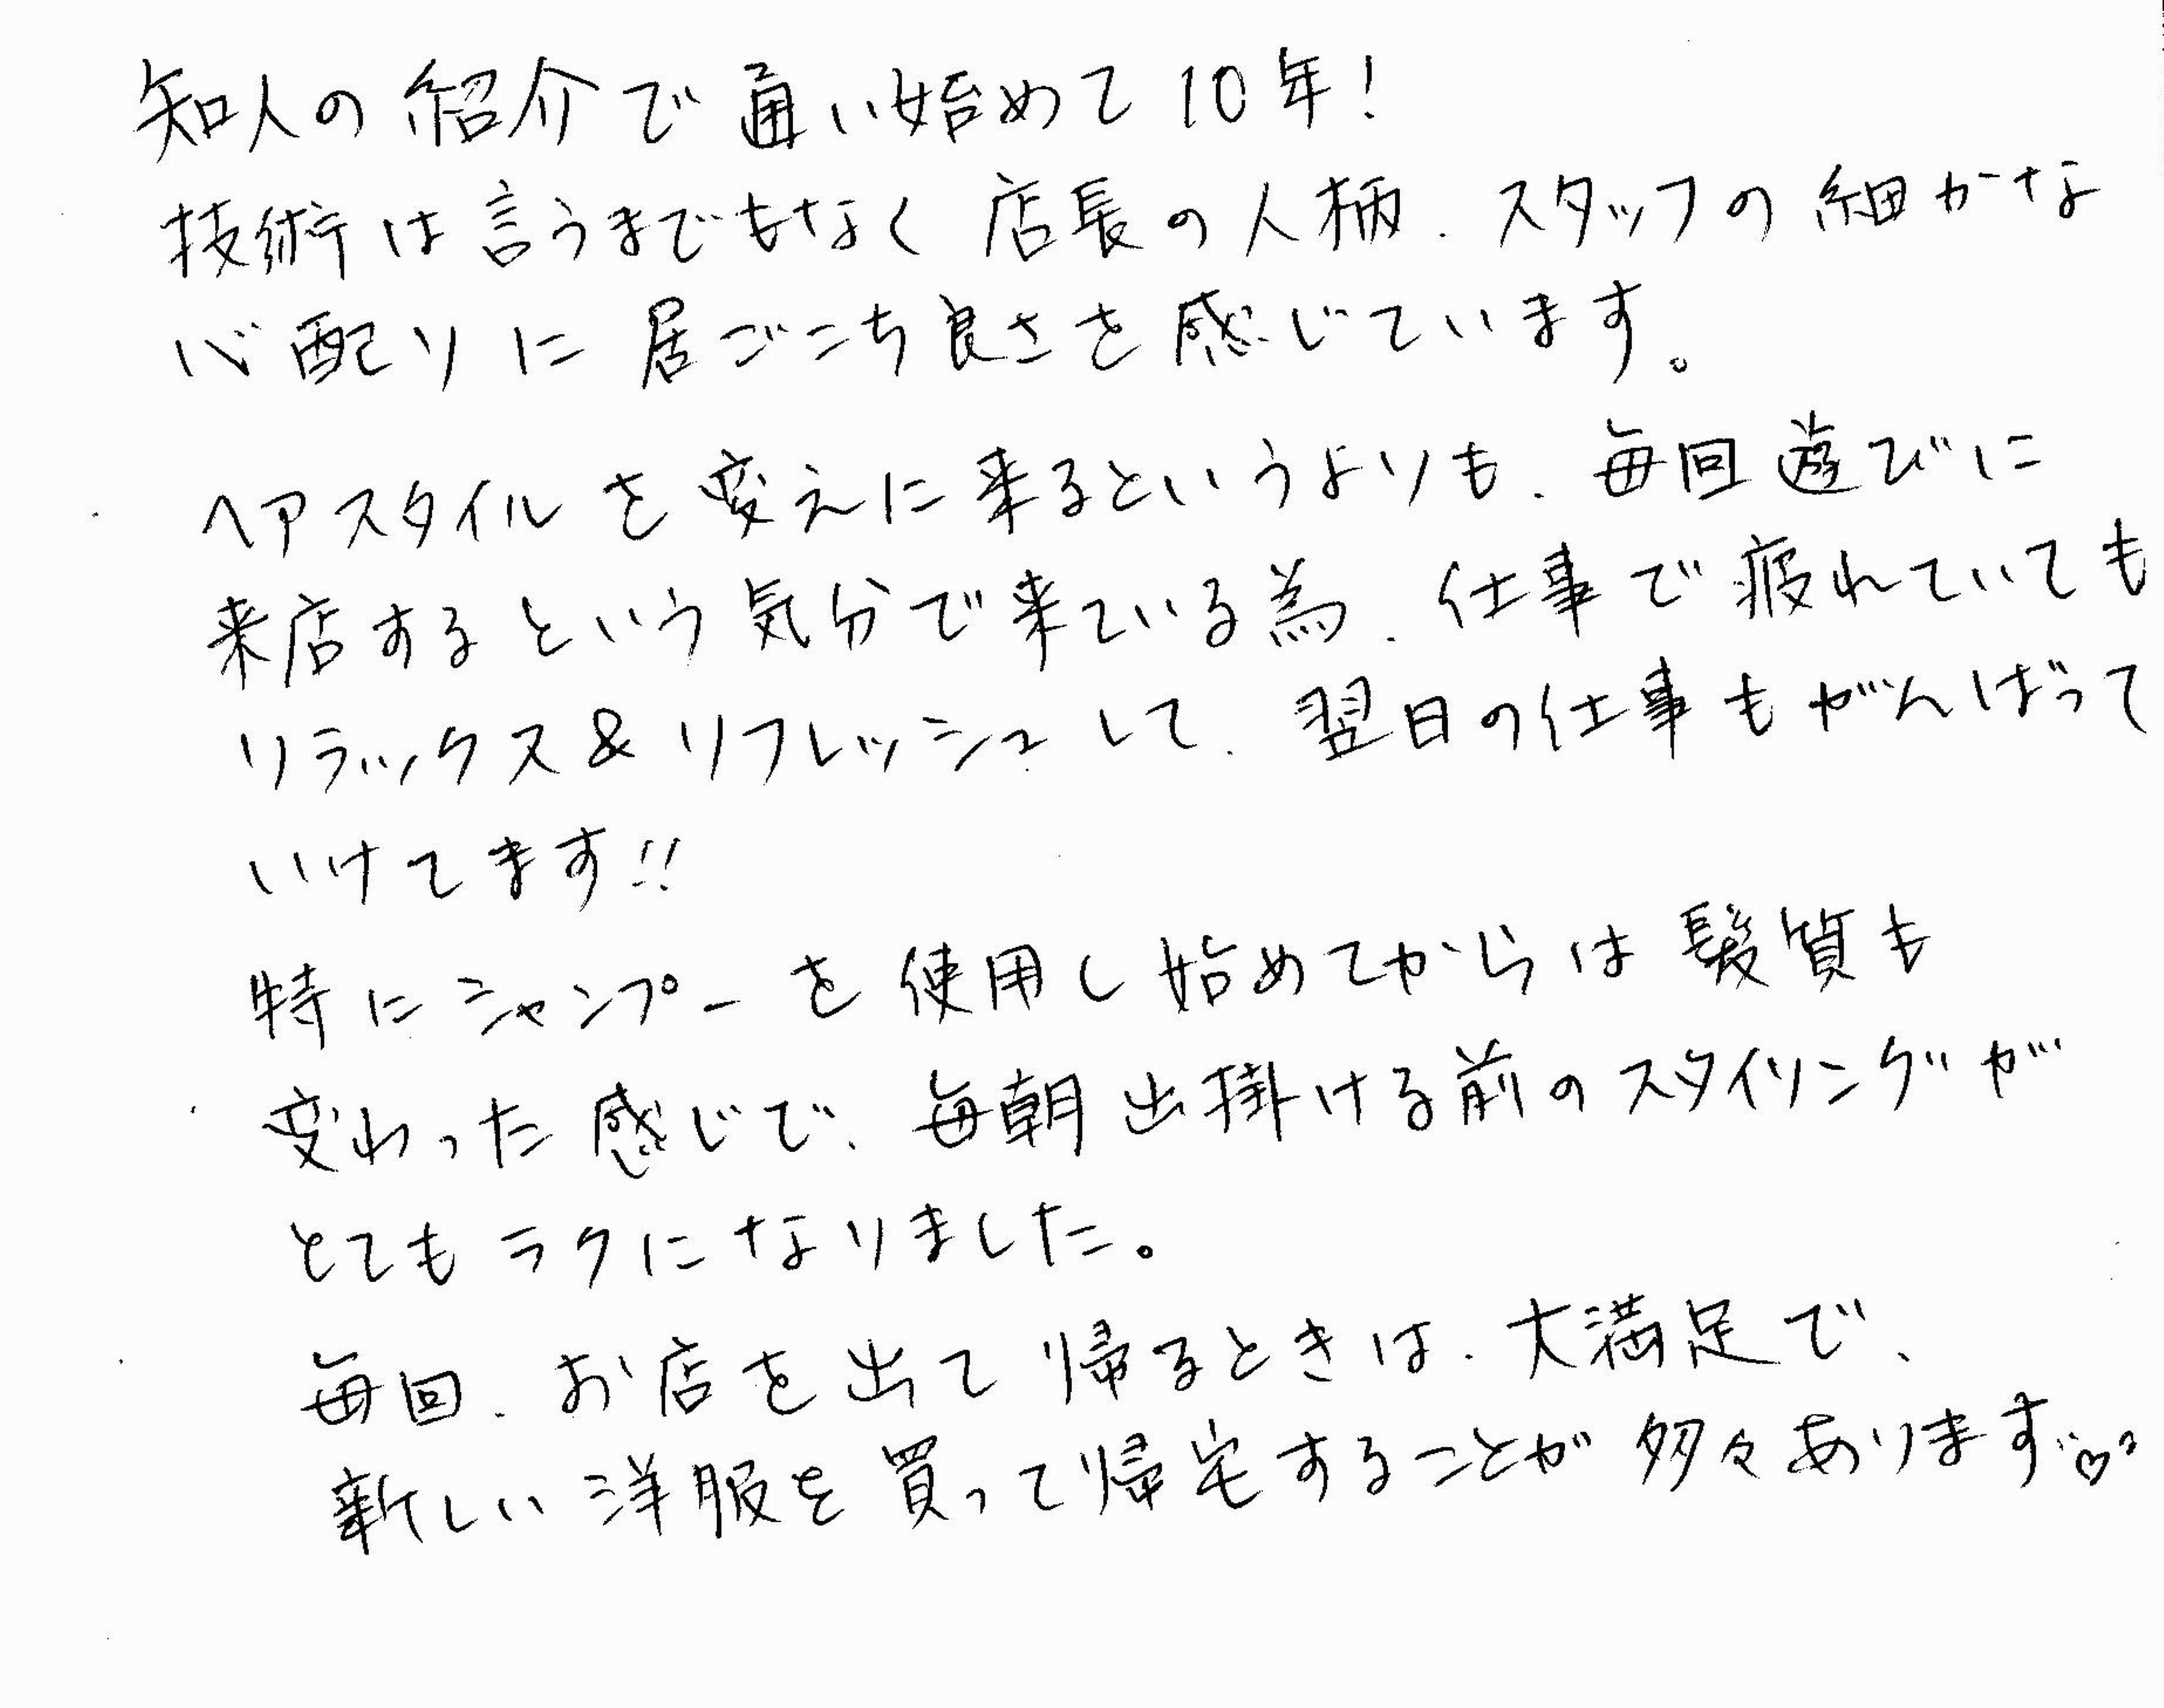 知人の紹介で通い始めて10年!
技術は言うまでもなく店長の人柄、スタッフの細かな
心配りに居ごこち良さを感じています。
ヘアスタイルを変えに来るというよりも、毎回遊びに
来店するという気分で来ている為、仕事で疲れていても
リラックス&リフレッシュして、翌日の仕事もがんばって
いけてます!!
特にシャンプーを使用し始めてからは髪質も
変わった感じで、毎朝出掛ける前のスタイリングが
とてもラクになりました。
毎回、お店を出て帰るときは、大満足で、
新しい洋服を買って帰宅することが多々あります♡